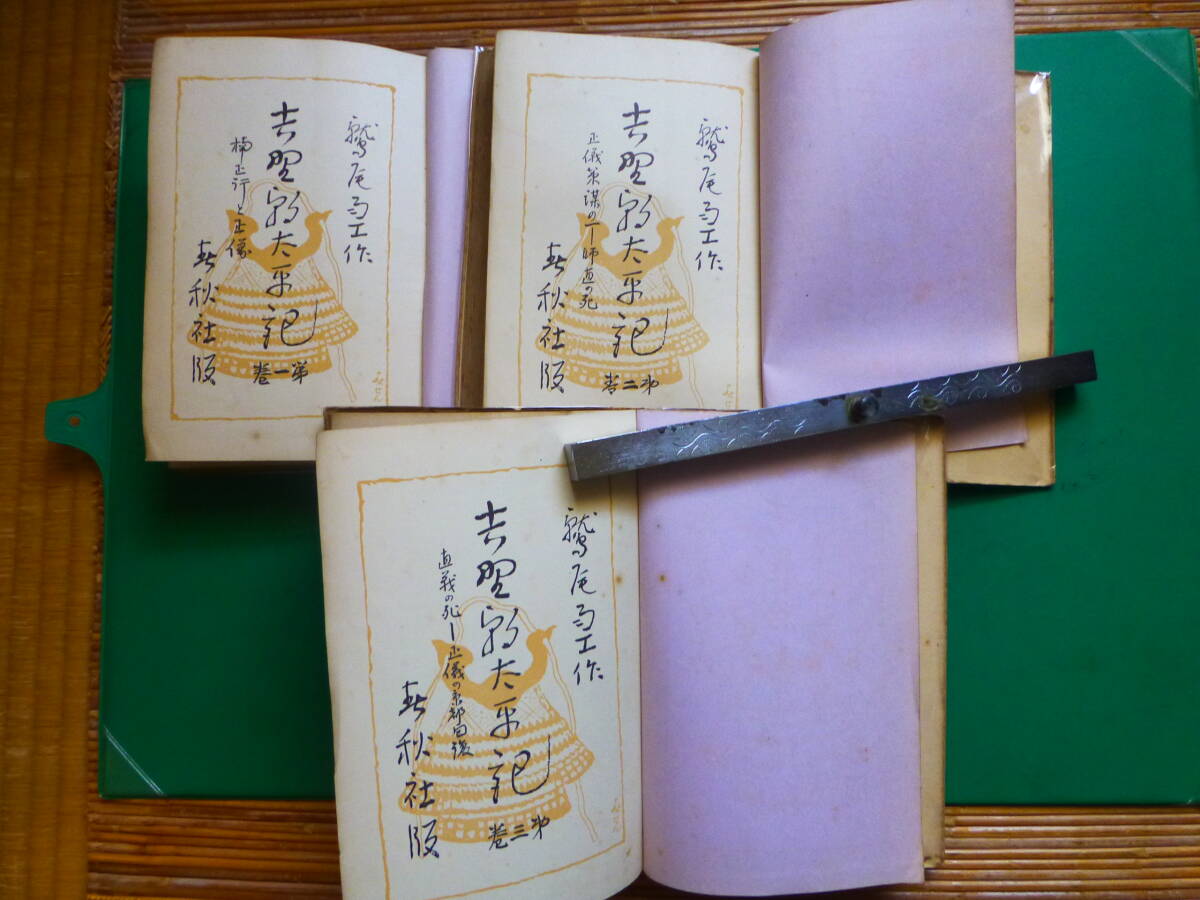 鷲尾雨工作
吉野朝太平記
第一巻
楠正行と正儀
春秋社版
鷲尾雨工作
吉野朝太平記
第二巻
正儀策謀の一師直の死
春秋社版
鷲尾雨工作
吉野朝太平記
第三巻
直義の死ー正儀の京都回復
春秋社版